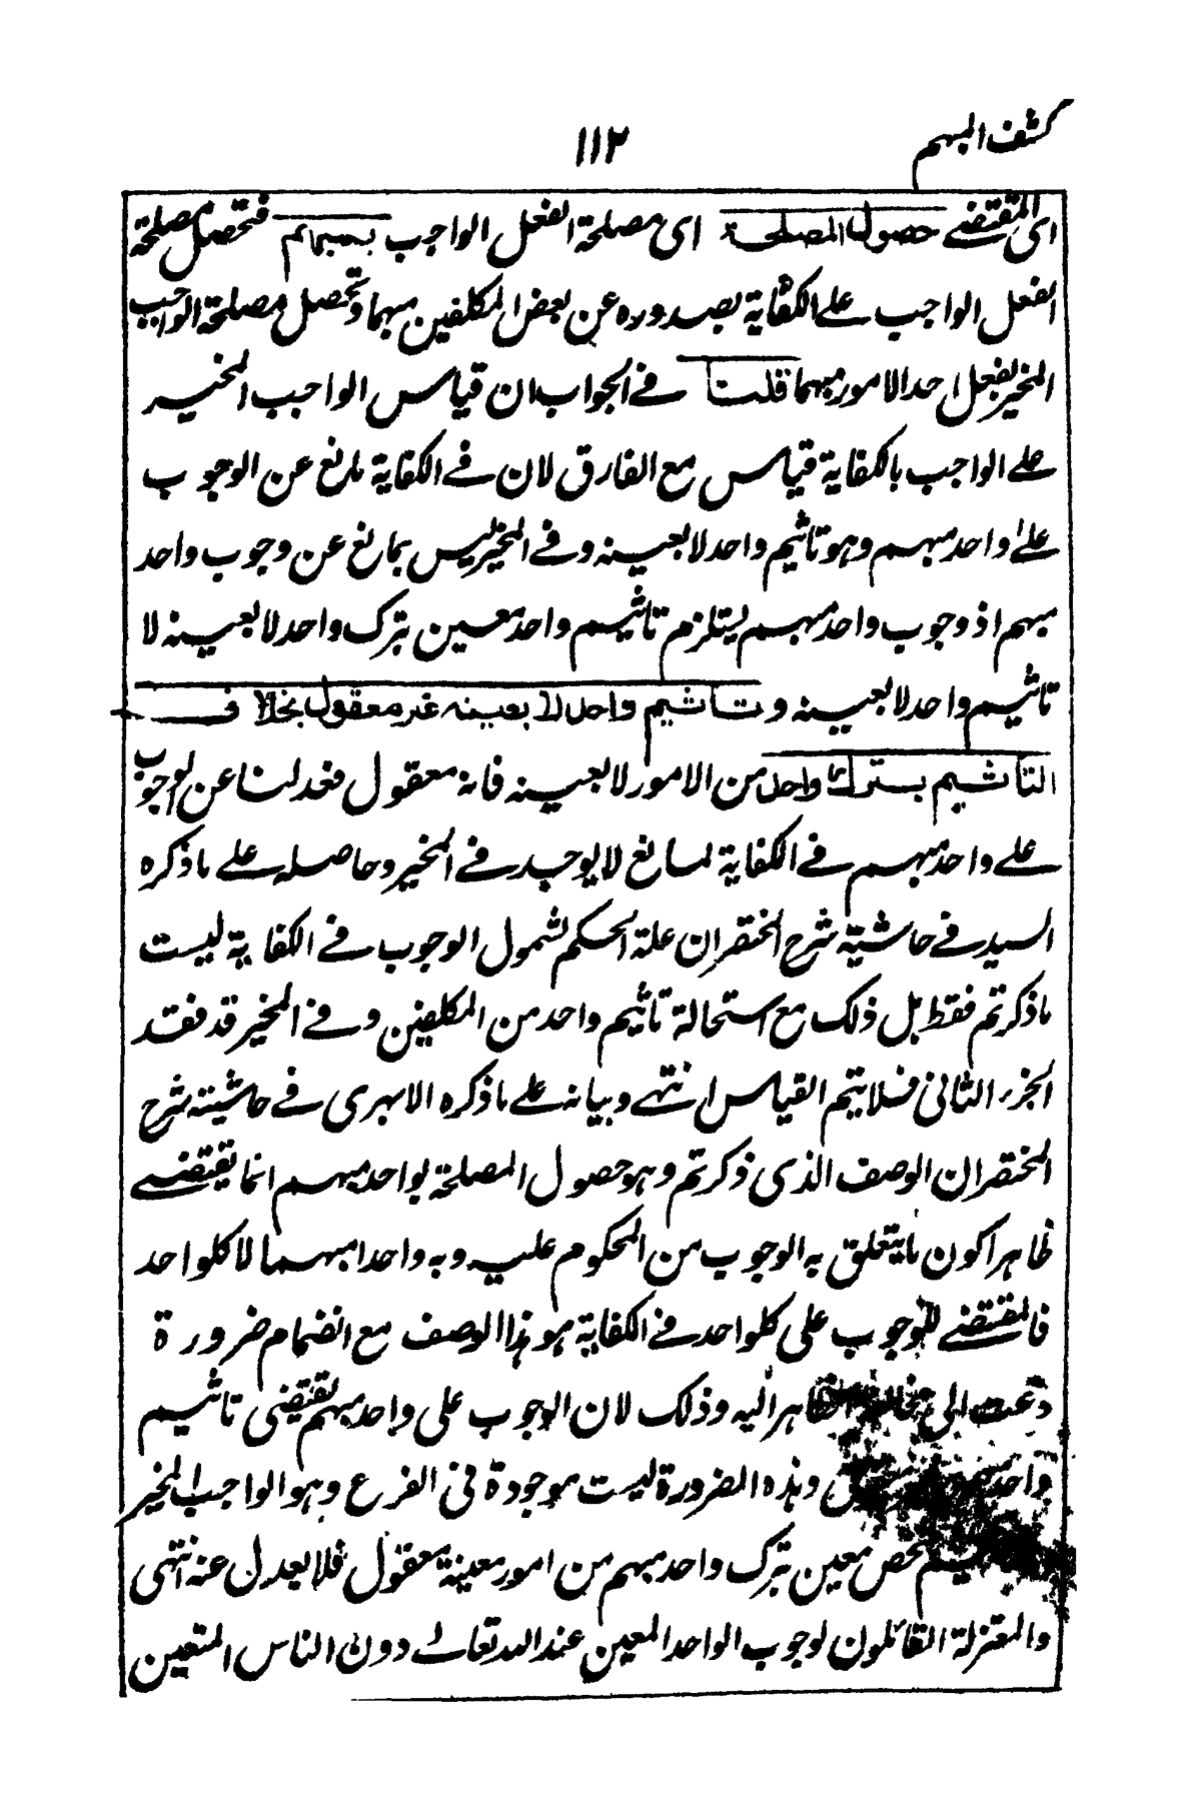 كشف المبهم
١١٢
اى المقتضے حصول المصلحة اى مصلحة الفعل الواجب بمبهم فتحصل مصلحة
الفعل الواجب علے الكفاية بصدوره عن بعض المكلفين مبهما وتحصل مصلحة الواجب
المخير بفعل احد الامور مبهما قلنا فے الجواب ان قياس الواجب المخير
علے الواجب بالكفاية قياس مع الفارق لان فے الكفاية مانع عن الوجوب
علے واحد مبهم وهو تاثيم واحد لا بعينه وفے المخير ليس بمانع عن وجوب واحد
مبهم اذ وجوب واحد مبهم يستلزم تاثيم واحد معين بترك واحد لا بعينه لا
تاثيم واحد لا بعينه و تاثيم واحد لا بعينه غير معقول بخلاف
التاثيم بترك واحد من الامور لا بعينه فانه معقول فعدلنا عن الوجوب
علے واحد مبهم فے الكفاية لمانع لا يوجد فے المخير وحاصله علے ما ذكره
السيد فے حاشية شرح المختصر ان علة الحكم لشمول الوجوب فے الكفاية ليست
ما ذكرتم فقط بل ذلك مع استحالة تاثيم واحد من المكلفين وفے المخير قد فقد
الجزء الثانى فلا يتم القياس انتهے وبيانه علے ما ذكره الابهرى فے حاشيته شرح
المختصر ان الوصف الذى ذكرتم وهو حصول المصلحة بواحد مبهم انما يقتضے
ظاهرا كون ما يتعلق به الوجوب من المحكوم عليه وبه واحدا مبهما لا كل واحد
فالمقتضے للوجوب على كل واحد فے الكفاية هو هذا الوصف مع انضمام ضرورة
دعت الى الظاهر اليه وذلك لان الوجوب على واحد مبهم يقتضى تاثيم
واحد وهذه الضرورة ليست موجودة فى الفرع وهو الواجب المخير
شخص معين بترك واحد مبهم من امور معينة معقول فلا يعدل عنه انتهى
والمعتزلة القائلون لوجوب الواحد المعين عند الله تعالے دون الناس المتعين